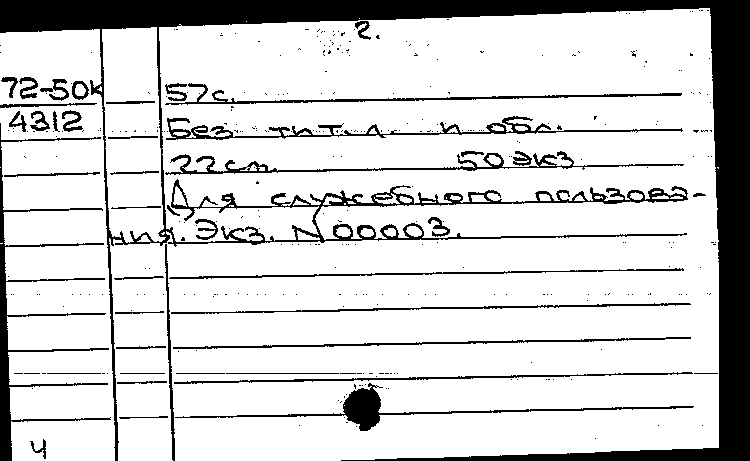 2.
72-50к 57с.
4312 Без тит.л. и обл.
22см. 50 экз.
Для служебного пользова-
ния. Экз. N 00003.
4